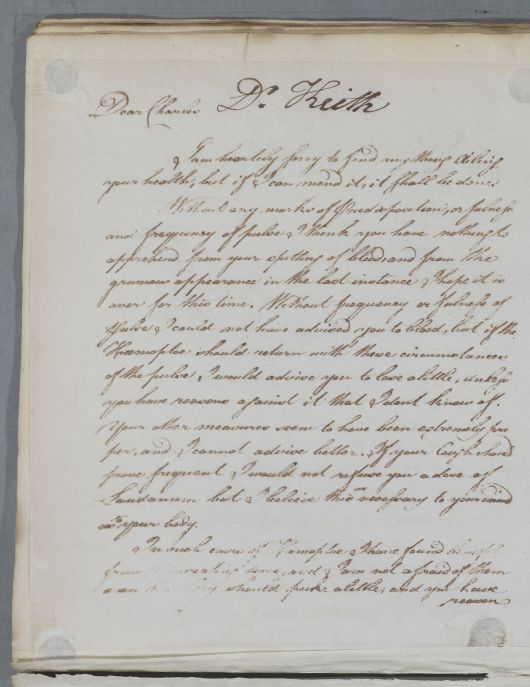 Dr. Keith
Dear Charles
I am heartily sorry to find any thing ailing
your health, but if I can mend it, it shall be done.
Without any marks of Predisposition, or fulness
and frequency of pulse I think you have nothing to
apprehend from your spitting of blood, and from the
grumous appearance in the last instance I hope it is
over for this time. Without frequency or fulness of
Pulse I could not have advised you to bleed, but if the
Hæmoptoe should return with these circumstances
of the pulse, I would advise you to lose a little, unless
you have reasons against it that I dont know of.
Your other measures seem to have been extremely pro
per, and I cannot advise better. If your Cough should
prove frequent I would not refuse you a dose of
Laudanum but I believe this necessary to your mind
as your body.
In such cases of Hæmoptoe I have found benefit
from and I am not afraid of them
even should puke a little, and you have
reason